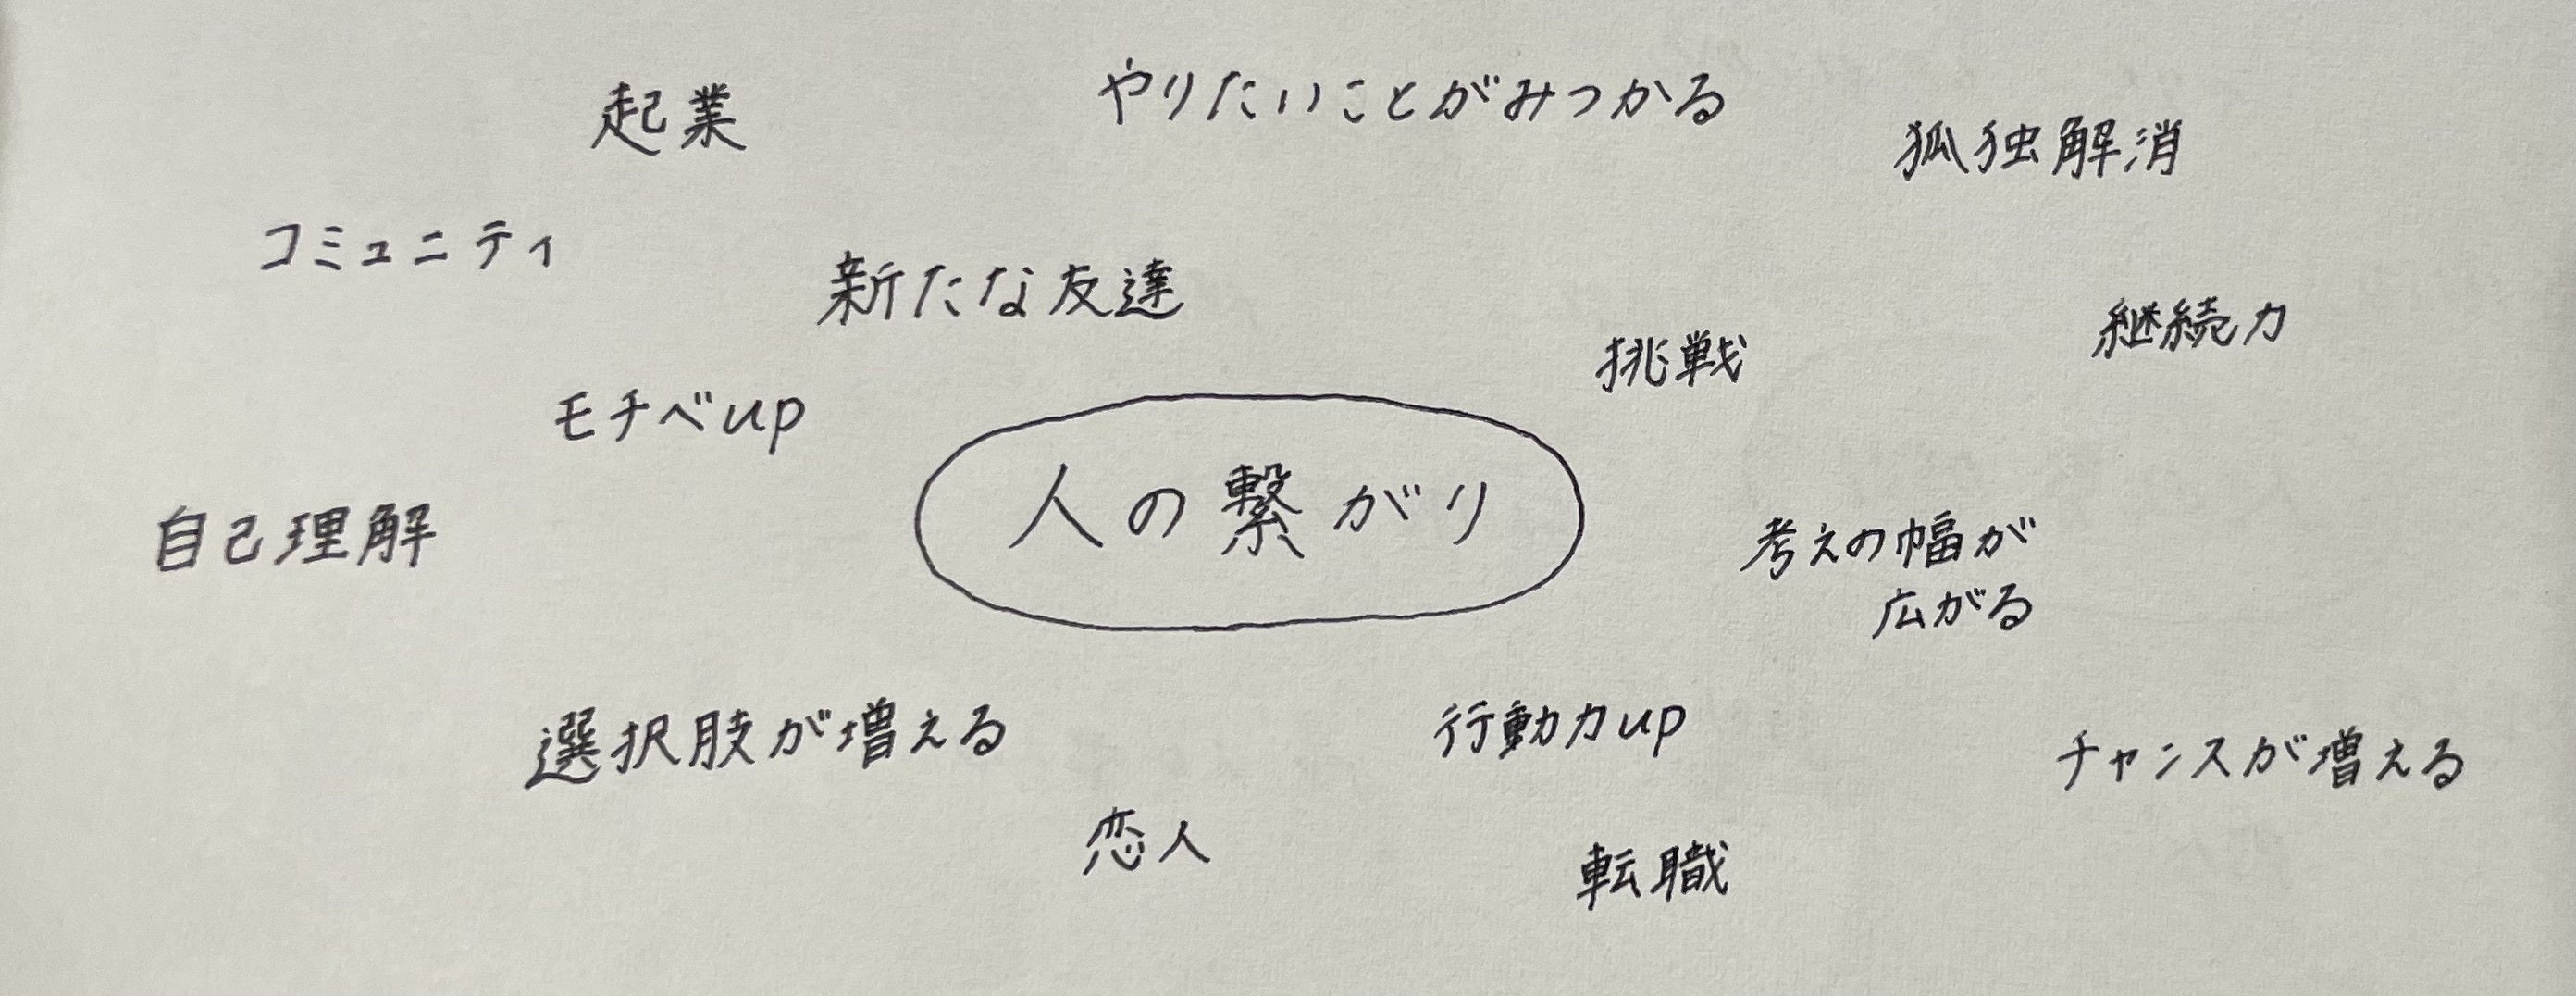 起業
やりたいことがみつかる
孤独解消
コミュニティ
新たな友達
挑戦
継続力
モチベup
人の繋がり
自己理解
考えの幅が
広がる
選択肢が増える
行動力up
チャンスが増える
恋人
転職